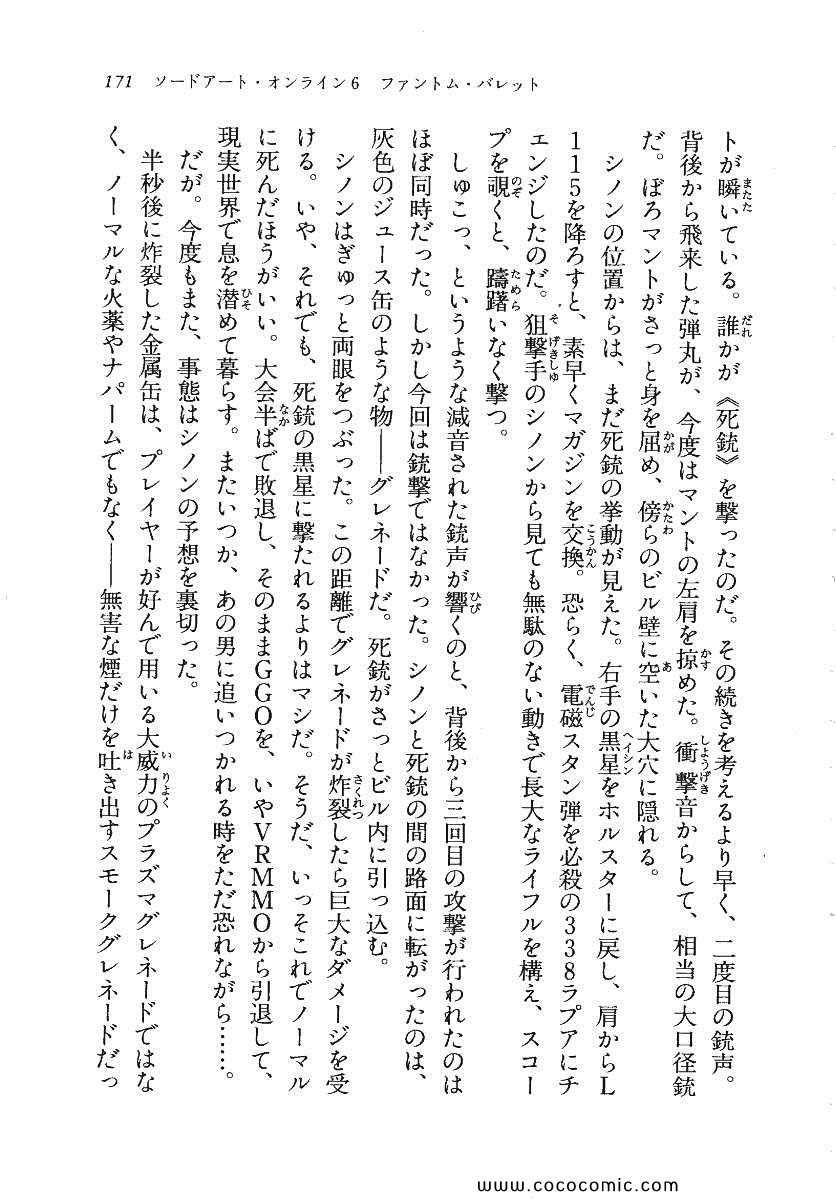 171　ソードアート・オンライン6　ファントム・バレット
トが瞬いている。誰かが《死銃》を撃ったのだ。その続きを考えるより早く、二度目の銃声。
背後から飛来した弾丸が、今度はマントの左肩を掠めた。衝撃音からして、相当の大口径銃
だ。ぼろマントがさっと身を屈め、傍らのビル壁に空いた大穴に隠れる。
シノンの位置からは、まだ死銃の挙動が見えた。右手の黒星をホルスターに戻し、肩からL
115を降ろすと、素早くマガジンを交換。恐らく、電磁スタン弾を必殺の338ラプアにチ
ェンジしたのだ。狙撃手のシノンから見ても無駄のない動きで長大なライフルを構え、スコー
プを覗くと、躊躇いなく撃つ。
しゅこっ、というような減音された銃声が響くのと、背後から三回目の攻撃が行われたのは
ほぼ同時だった。しかし今回は銃撃ではなかった。シノンと死銃の間の路面に転がったのは、
灰色のジュース缶のような物――グレネードだ。死銃がさっとビル内に引っ込む。
シノンはぎゅっと両眼をつぶった。この距離でグレネードが炸裂したら巨大なダメージを受
ける。いや、それでも、死銃の黒星に撃たれるよりはマシだ。そうだ、いっそこれでノーマル
に死んだほうがいい。大会半ばで敗退し、そのままGGOを、いやVRMMOから引退して、
現実世界で息を潜めて暮らす。またいつか、あの男に追いつかれる時をただ恐れながら……。
だが。今度もまた、事態はシノンの予想を裏切った。
半秒後に炸裂した金属缶は、プレイヤーが好んで用いる大威力のプラズマグレネードではな
く、ノーマルな火薬やナパームでもなく――無害な煙だけを吐き出すスモークグレネードだっ
www.cococomic.com